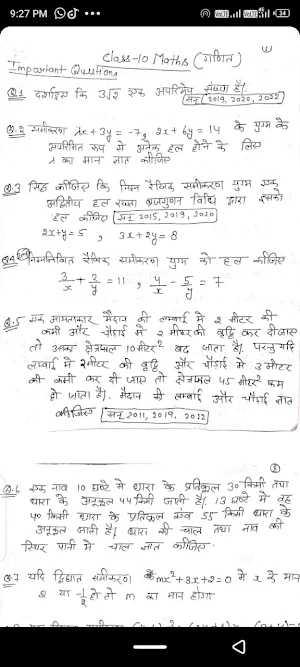 9:27 PM
34
Class-10 Maths (गणित)
Important Questions
Q.1 दर्शाइए कि 3√2 एक अपरिमेय संख्या है।
सन् 2019, 2020, 2022
Q.2 समीकरण λx + 3y = -7, 2x + 6y = 14 के युग्म के
अपरिमित रूप से अनेक हल होने के लिए
λ का मान ज्ञात कीजिए
Q.3 सिद्ध कीजिए कि निम्न रैखिक समीकरण युग्म एक
अद्वितीय हल रखता बज्रगुणन विधि द्वारा इसको
हल कीजिए सन् 2015, 2019, 2020
2x+y = 5 , 3x + 2y = 8
Q.4 निम्नलिखित रैखिक समीकरण युग्म को हल कीजिए
3/x + 2/y = 11 , 4/x - 5/y = 7
Q.5 एक आयताकार मैदान की लम्बाई में 2 मीटर की
कमी और चौड़ाई में 2 मीटर की वृद्धि कर दी जाए
तो उसका क्षेत्रफल 10 मीटर² बढ़ जाता है। परन्तु यदि
लम्बाई में 2 मीटर की वृद्धि और चौड़ाई में 3 मीटर
की कमी कर दी जाए तो क्षेत्रफल 45 मीटर² कम
हो जाता है। मैदान की लम्बाई और चौड़ाई ज्ञात
कीजिए सन् 2011, 2019, 2022
Q.6 एक नाव 10 घण्टे में धारा के प्रतिकूल 30 किमी तथा
धारा के अनुकूल 44 किमी जाती है। 13 घण्टे में वह
40 किमी धारा के प्रतिकूल एवं 55 किमी धारा के
अनुकूल जाती है। धारा की चाल तथा नाव की
स्थिर पानी में चाल ज्ञात कीजिए.
Q.7 यदि द्विघात समीकरण mx² + 3x + 2 = 0 में x के मान
2 या 1/2 हो तो m का मान होगा